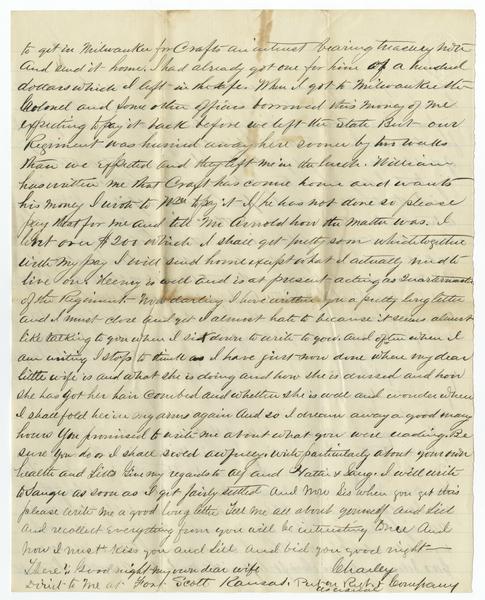 to get in Milwaukee for Crafts an interest bearing treasury note
and send it home. I had already got one for him of a hundred
dollars which I left in the safe. When I got to Milwaukee the
Colonel and some other officers borrowed this money of me
expecting to pay it back before we left the State But our
Regiment was hurried away here sooner by two weeks
than we expected and they left me in the lurch. William
has written me that Craft has come home and wants
his money I wrote to Wm to pay it if he has not done so please
pay that for me and tell Mr Arnold how the matter was. I
lent over $200 which I shall get pretty soon which together
with my pay I will send home except what I actually need to
live on. Feeney is well and is at present acting as Quartermaster
of the Regiment. Now darling I have written you a pretty long letter
and I must close and yet I almost hate to because it seems almost
like talking to you when I sit down to write to you. and often when I
am writing I stop to think as I have just now done where my dear
little wife is and what she is doing and how she is dressed and how
she has got her hair combed and whether she is well and wonder when
I shall fold her in my arms again And so I dream away a good many
hours You promised to write me about what you were reading. Be
sure you do or I shall scold awfully. write particularly about your own
health and Lills Give my regards to all and Hattie & I will write
to as soon as I get fairly settled And now when you get this
please write me a good long letter Tell me all about yourself and Lill
and recollect everything from you will be interesting Once And
Now I must kiss you and Lill and bid you good night
There is Good night my own dear wife Charley
Direct to me at Fort Scott Kansas. Put on Regt & Company
as usual